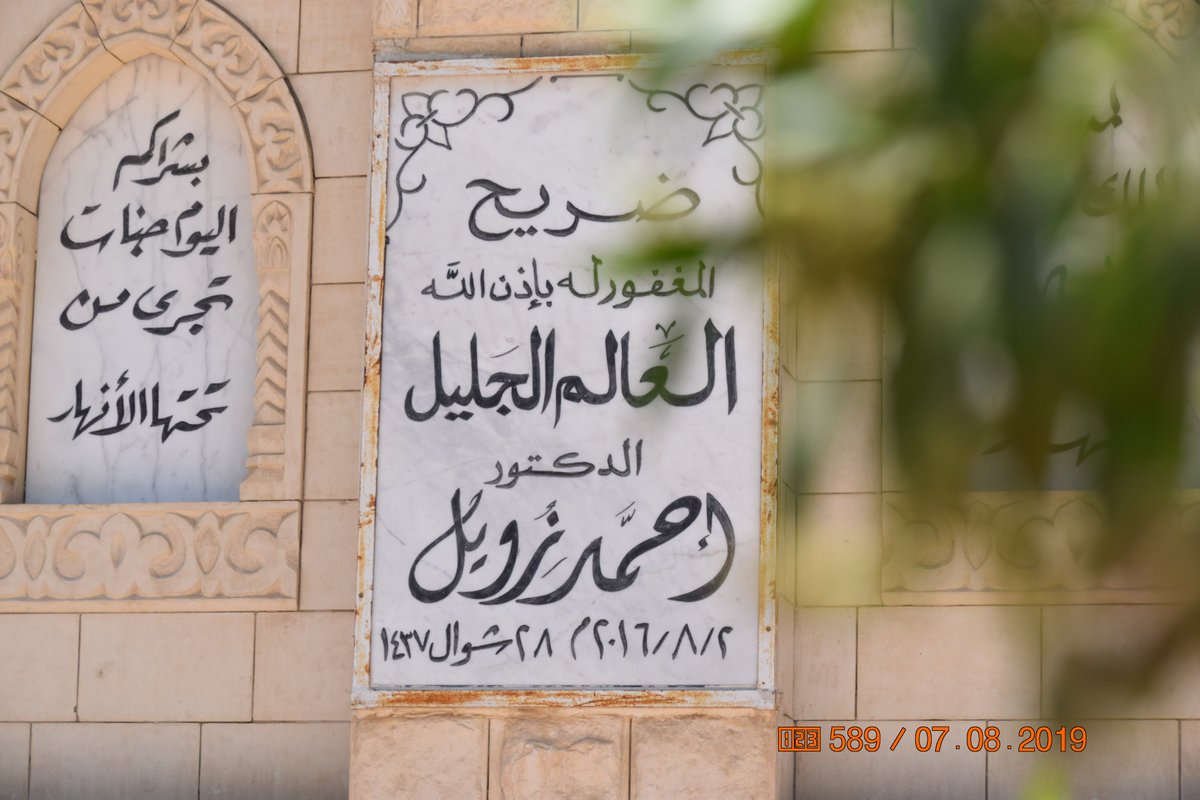 ضريح
المغفور له بإذن الله
العالم الجليل
الدكتور
احمد زويل
٢٠١٦/٨/٢م ٢٨ شوال ١٤٣٧
بشراكم
اليوم جنات
تجرى من
تحتها الأنهار
123 589 / 07.08.2019